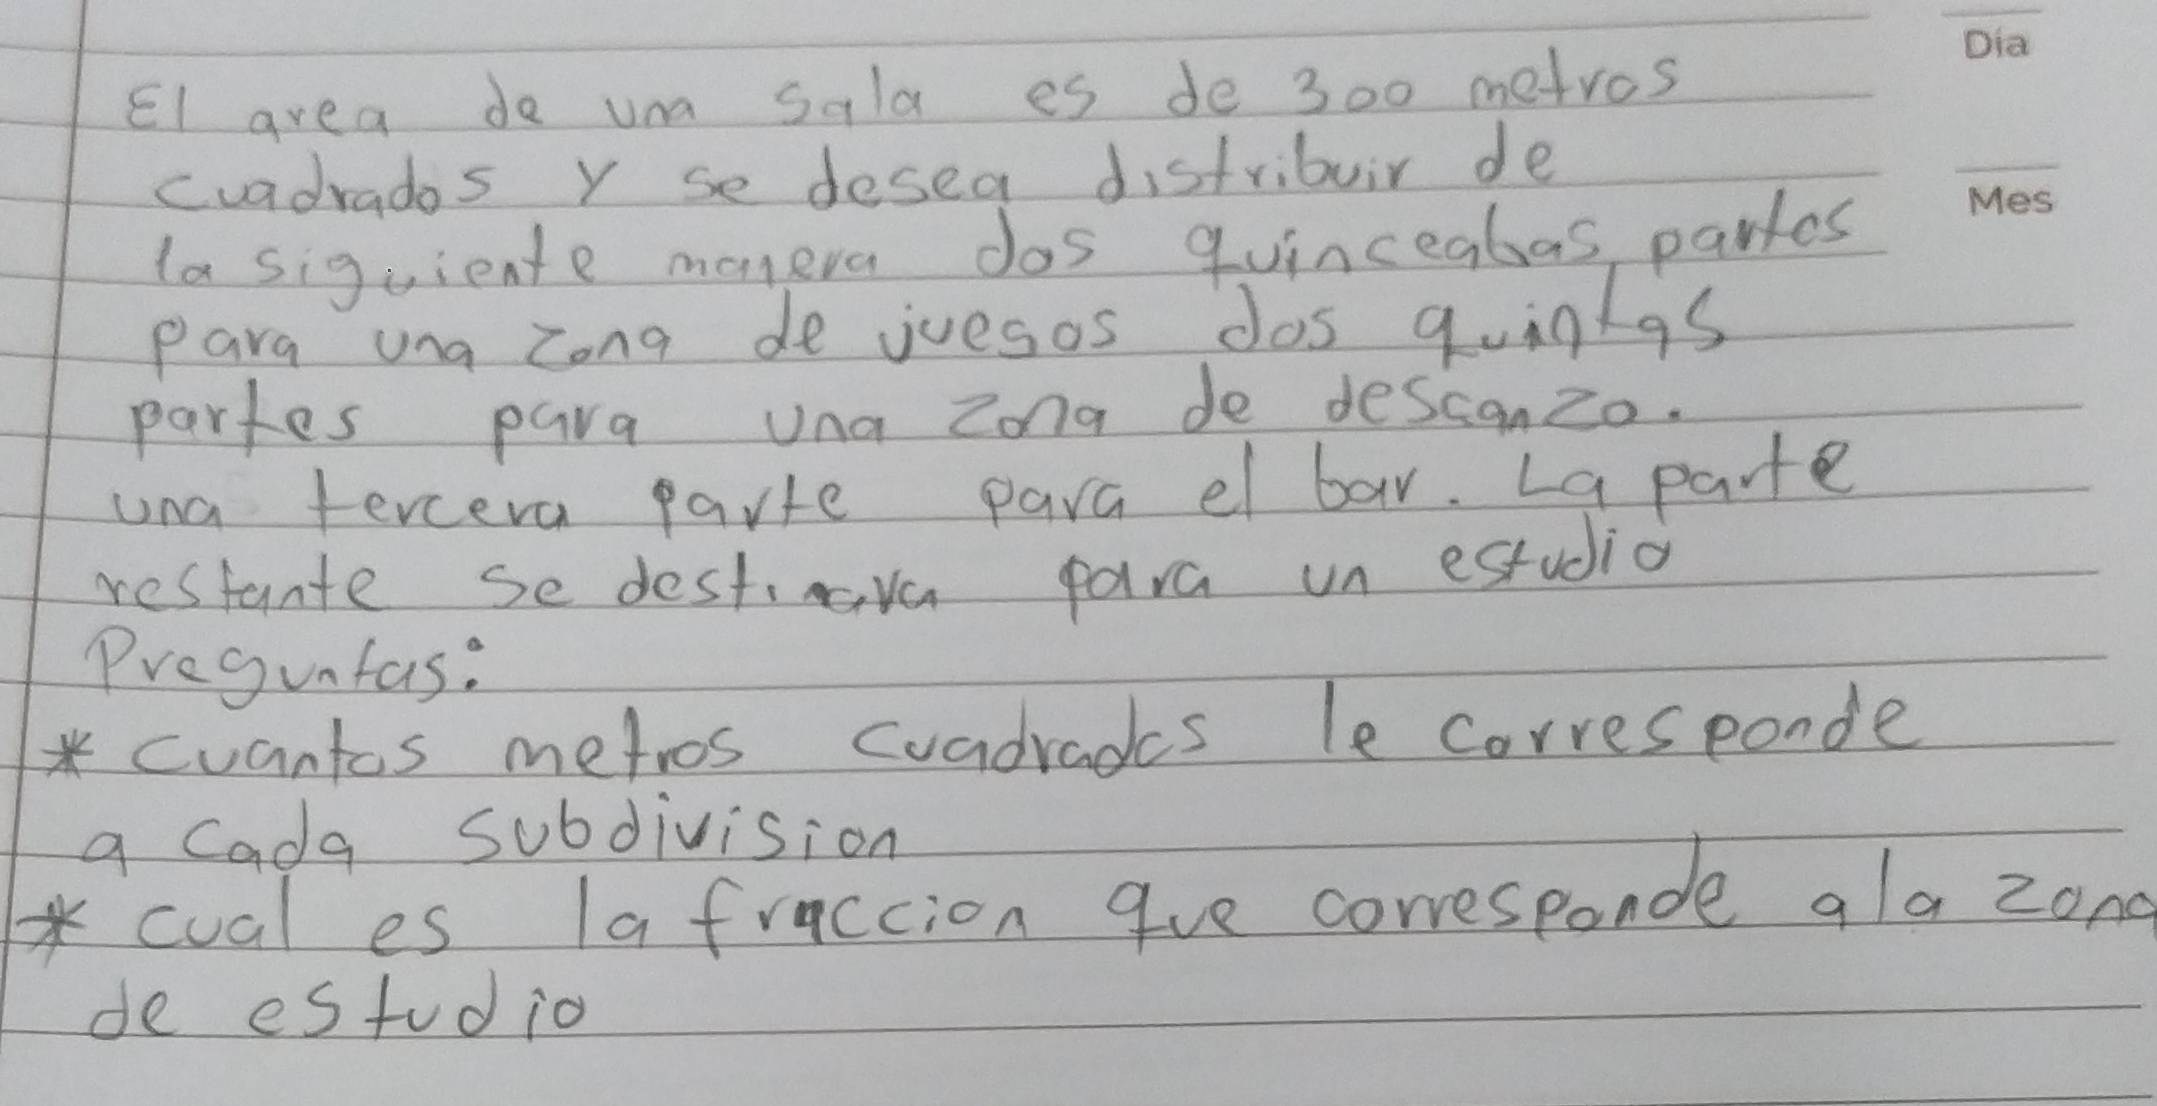 El area de una sala es de 300 metros
Dia
cuadrados y se desea distribuir de
Mes
la siguiente manera dos quinceabas partes
para una zona de juegos dos quintas
partes para una zona de descanzo.
una tercera parte para el bar. La parte
restante se destinara para un estudio
Preguntas:
* cuantos metros cuadrados le corresponde
a cada subdivision
* cual es la fraccion que corresponde a la zona
de estudio